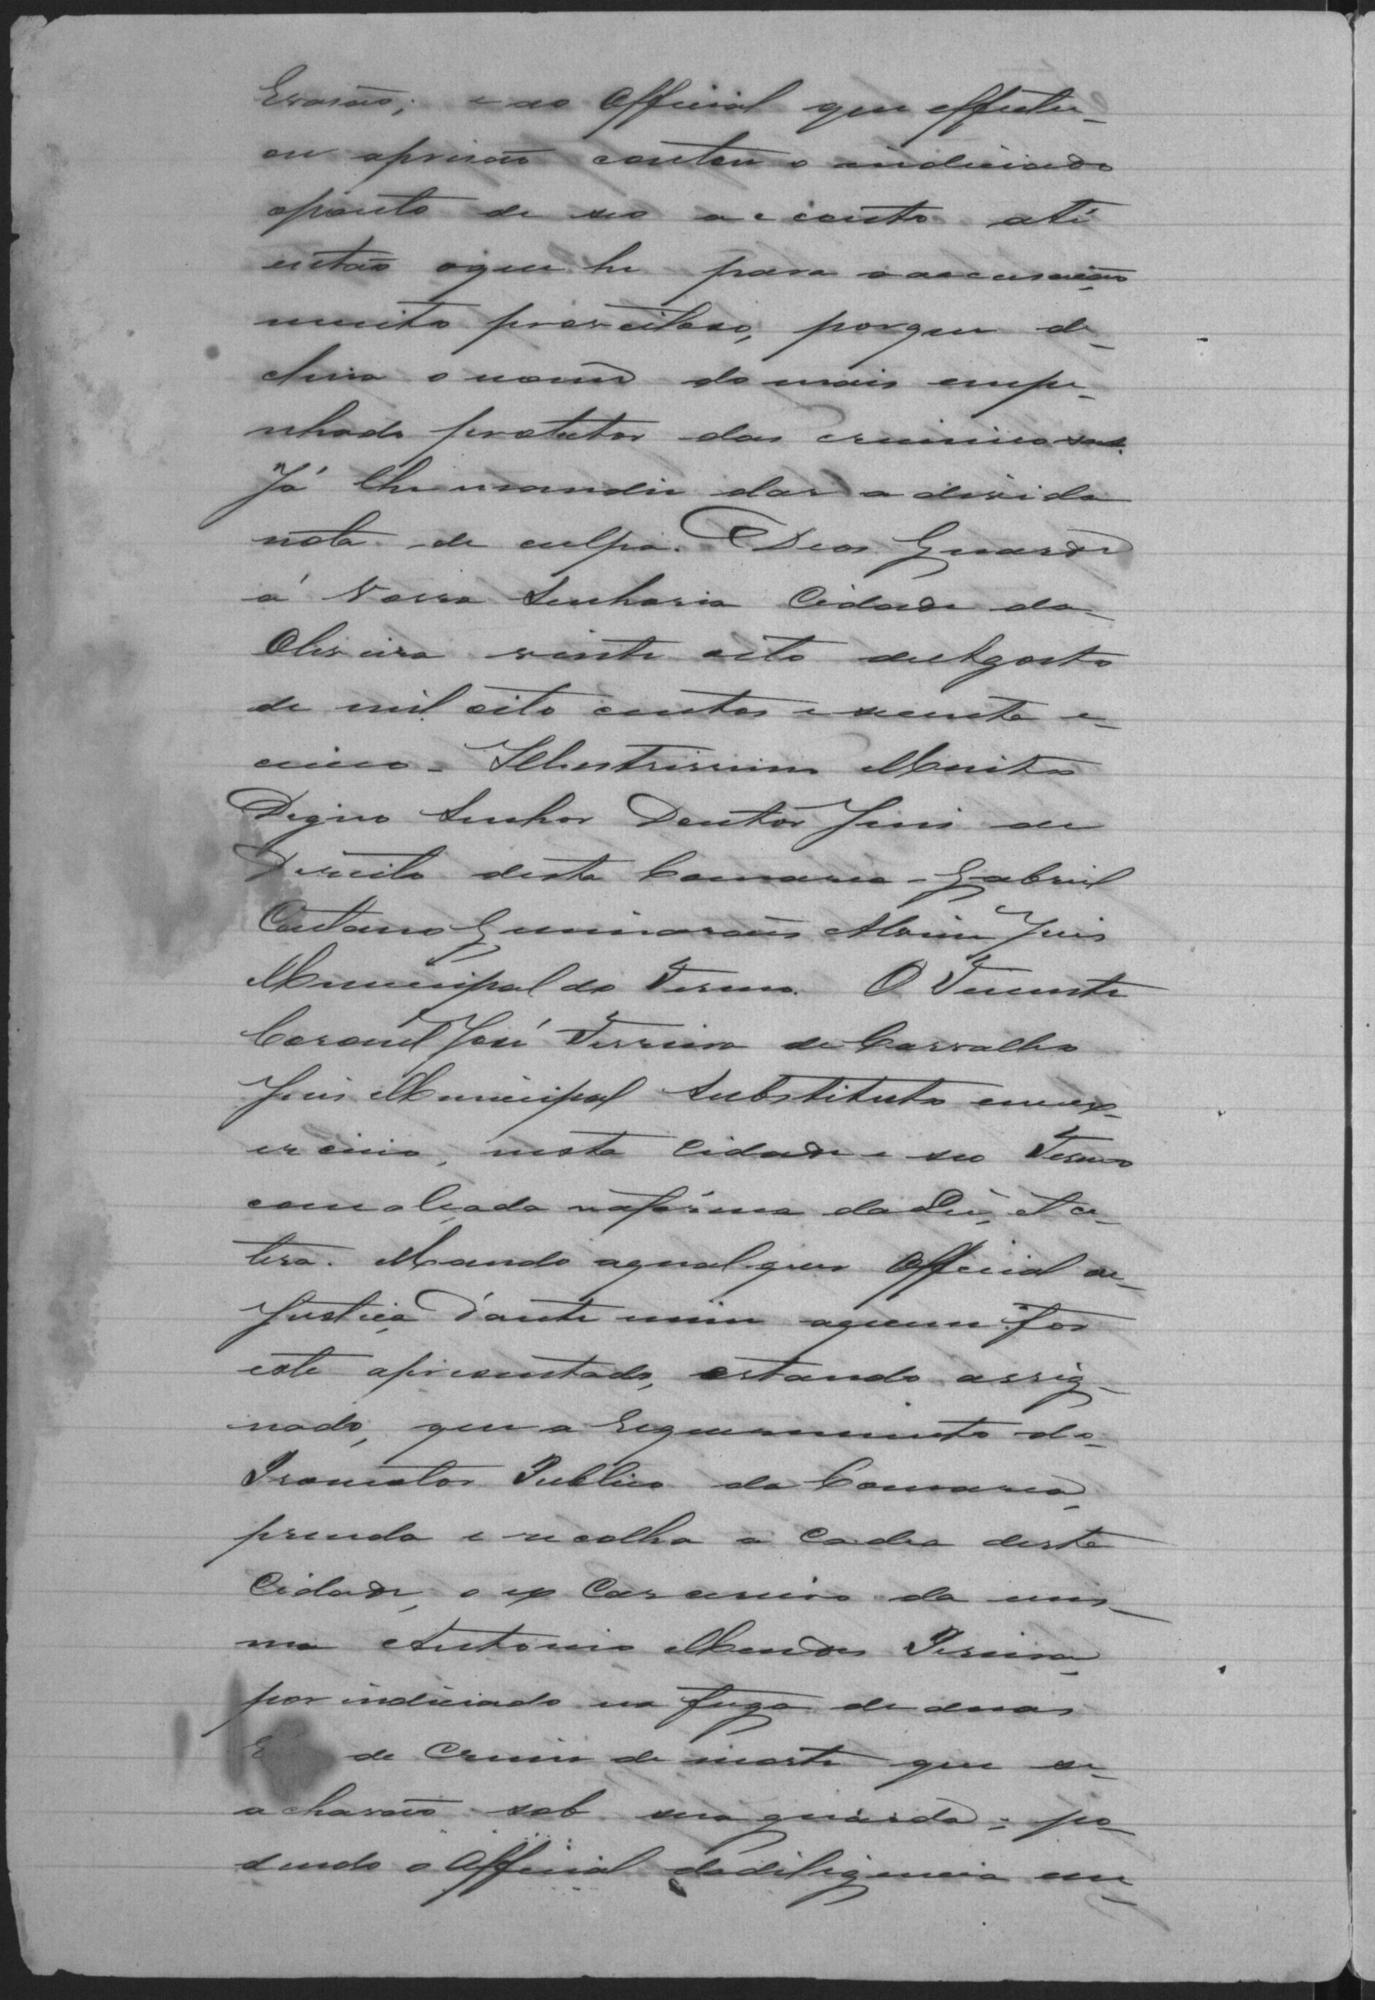 Evasão; e ao Official que effectu-
ou aprisão contou o indiciado
oponto de seo acoito até
então oque he para a accusação
muito proveitoso, porque de-
clina o nome do mais empe-
nhado protetor dos criminosos.
Já lhe mandei dar a devida
nota de culpa. Deos Guarde
á Vossa Senhoria Cidade da
Oliveira vinte oito deAgosto
de mil oito centos e secenta e
cinco - Illustrissimo Muito
Digno Senhor Doutor Juis de
Direito desta Comarca - Gabriel
Caetano Guimaraens Alvim Juis
Municipal do Termo. O Tenente
Coronel José Ferreira de Carvalho
Juis Municipal Substituto emex-
ercicio, nesta Cidade e seo Termo
com alçada nafórma daLei, Et ce-
tera. Mando aqualquer Official de
Justiça d'ante mim aquem for
este apresentado, estando assig-
nado, que a Requerimento do
Promotor Publico da Comarca,
prenda e recolha a Cadea desta
Cidade, o ex Carcereiro da mes-
ma Antonio Mendes Pereira,
por indiciado na fuga de duas
de Crime de morte que se
achavão sob sua guarda; po-
dendo o Official dadiligencia em